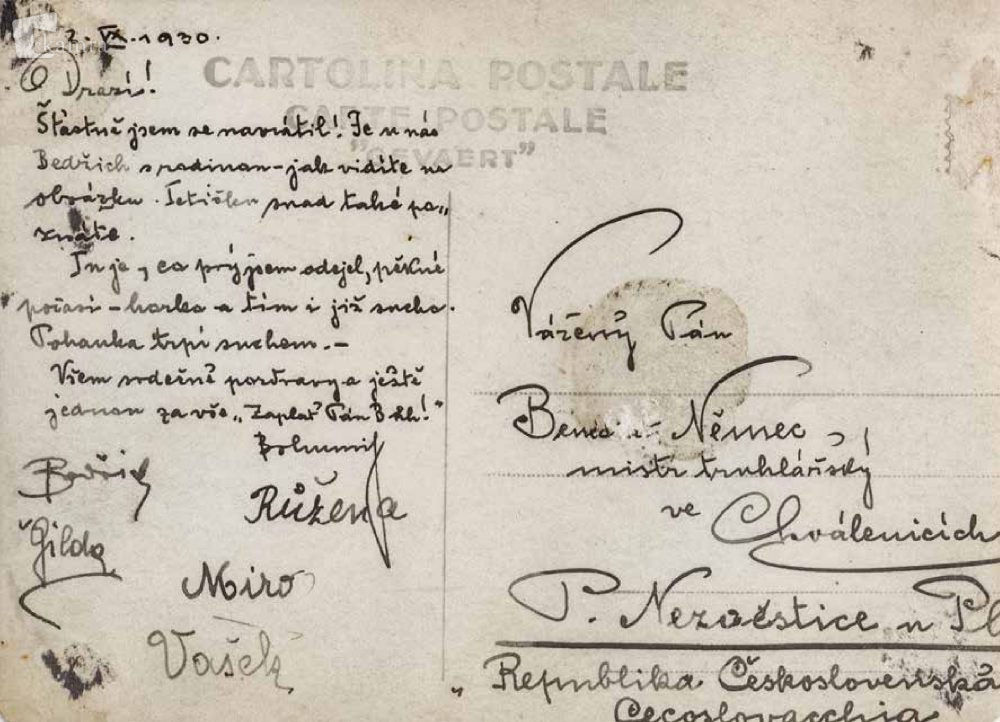 2. IX. 1930.
CARTOLINA POSTALE
CARTE POSTALE
"GEVAERT"
Drazí!
Šťastně jsem se navrátil! Je u nás
Bedřich s rodinou - jak vidíte na
obrázku. Tetičku snad také po„
znáte.
Tu je, co prý jsem odejel, pěkné
počasí - horko - a tím i již sucho.
Pohanka trpí suchem. -
Všem srdečné pozdravy a ještě
jednou za vše „Zaplať Pán Bůh!"
Bohumil
Bedřich
Růžena
Gilda
Miro
Vašek
Vážený Pán
Němec,
mistr truhlářský
ve
Chválenicích
P. Nezvěstice u Pl
Republika Československá
Cecoslovacchia